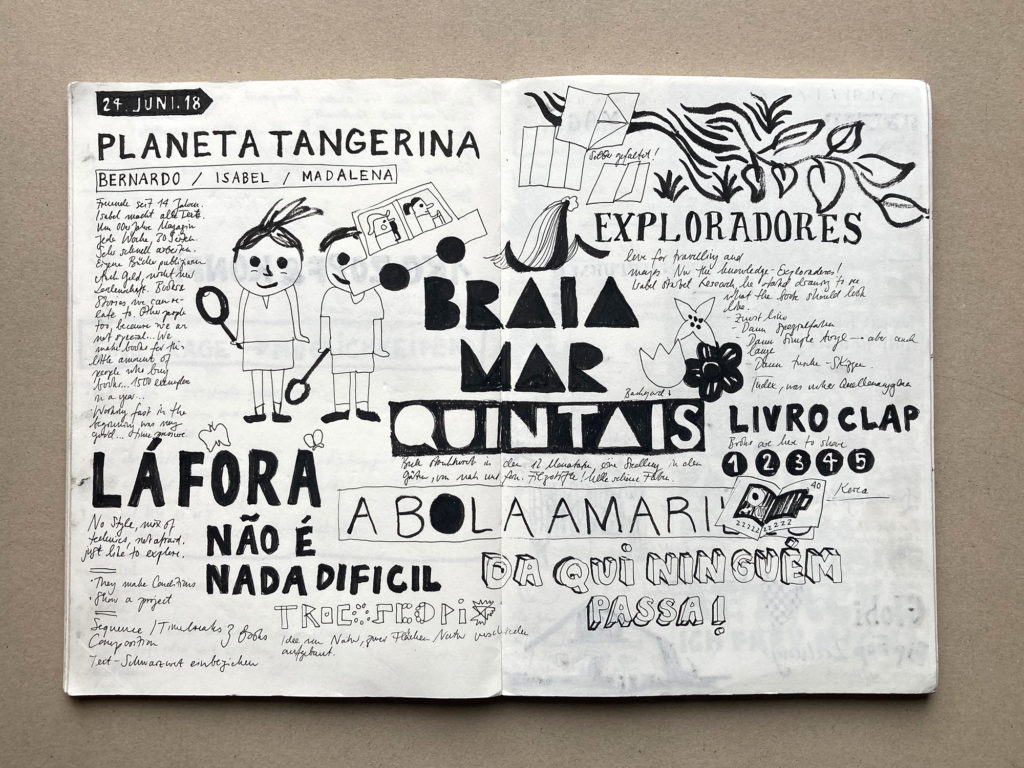 24. JUNI. 18
PLANETA TANGERINA
BERNARDO / ISABEL / MADALENA
Freunde seit 14 Jahren.
Isabel macht alle Texte.
Um 00er Jahre Magazin
Jede Woche, 30 Seiten.
Sehr schnell arbeiten.
Eigene Bücher publizieren
Geld,
Leidenschaft. Books
Stories we can re-
late to. Other people
too, because we are
not special... We
make books for the
little amount of
people who buy
books... 1500 exemplare
in a year...
Working fast in the
beginning was very
good... time pressure.
LÁ FORA
No Style, mix of
techniques, not afraid.
just like to explore.
• They make Conditions
• Show a project
Sequence / Timebreaks } Books
Composition
Text - Schwarzwert einbeziehen
NÃO É
NADA DIFICIL
TROC
Idee von Natur, zwei Flächen Natur verschieden
aufgebaut.
Selber gefaltet!
EXPLORADORES
love for travelling and
maps. Now the knowledge - Exploradores!
Isabel started Research, he started drawing to see
what the book should look
like.
- Zuerst
- Dann
- Dann simple → aber auch
lange
- Dann Tusche - Skizzen
Index, was
BRAIA
MAR
QUINTAIS
Backyards
Buch in den 12 Monaten, eine Stellung in den
Gärten, von nah und fern. Filzstifte! Tolle schöne Farben.
LIVRO CLAP
Books are here to share
1 2 3 4 5
40
ZZZZ ZZZZZ
Korea
A BOLA AMAR
DA QUI NINGUÉM
PASSA!